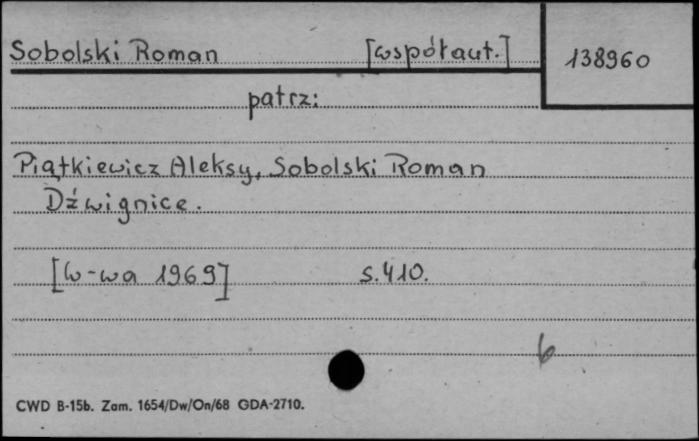 Sobolski Roman [współaut.] 138960
patrz:
Piątkiewicz Aleksy, Sobolski Roman
Dźwignice.
[W-wa 1969] s. 410.
6
CWD B-15b. Zam. 1654/Dw/On/68 GDA-2710.